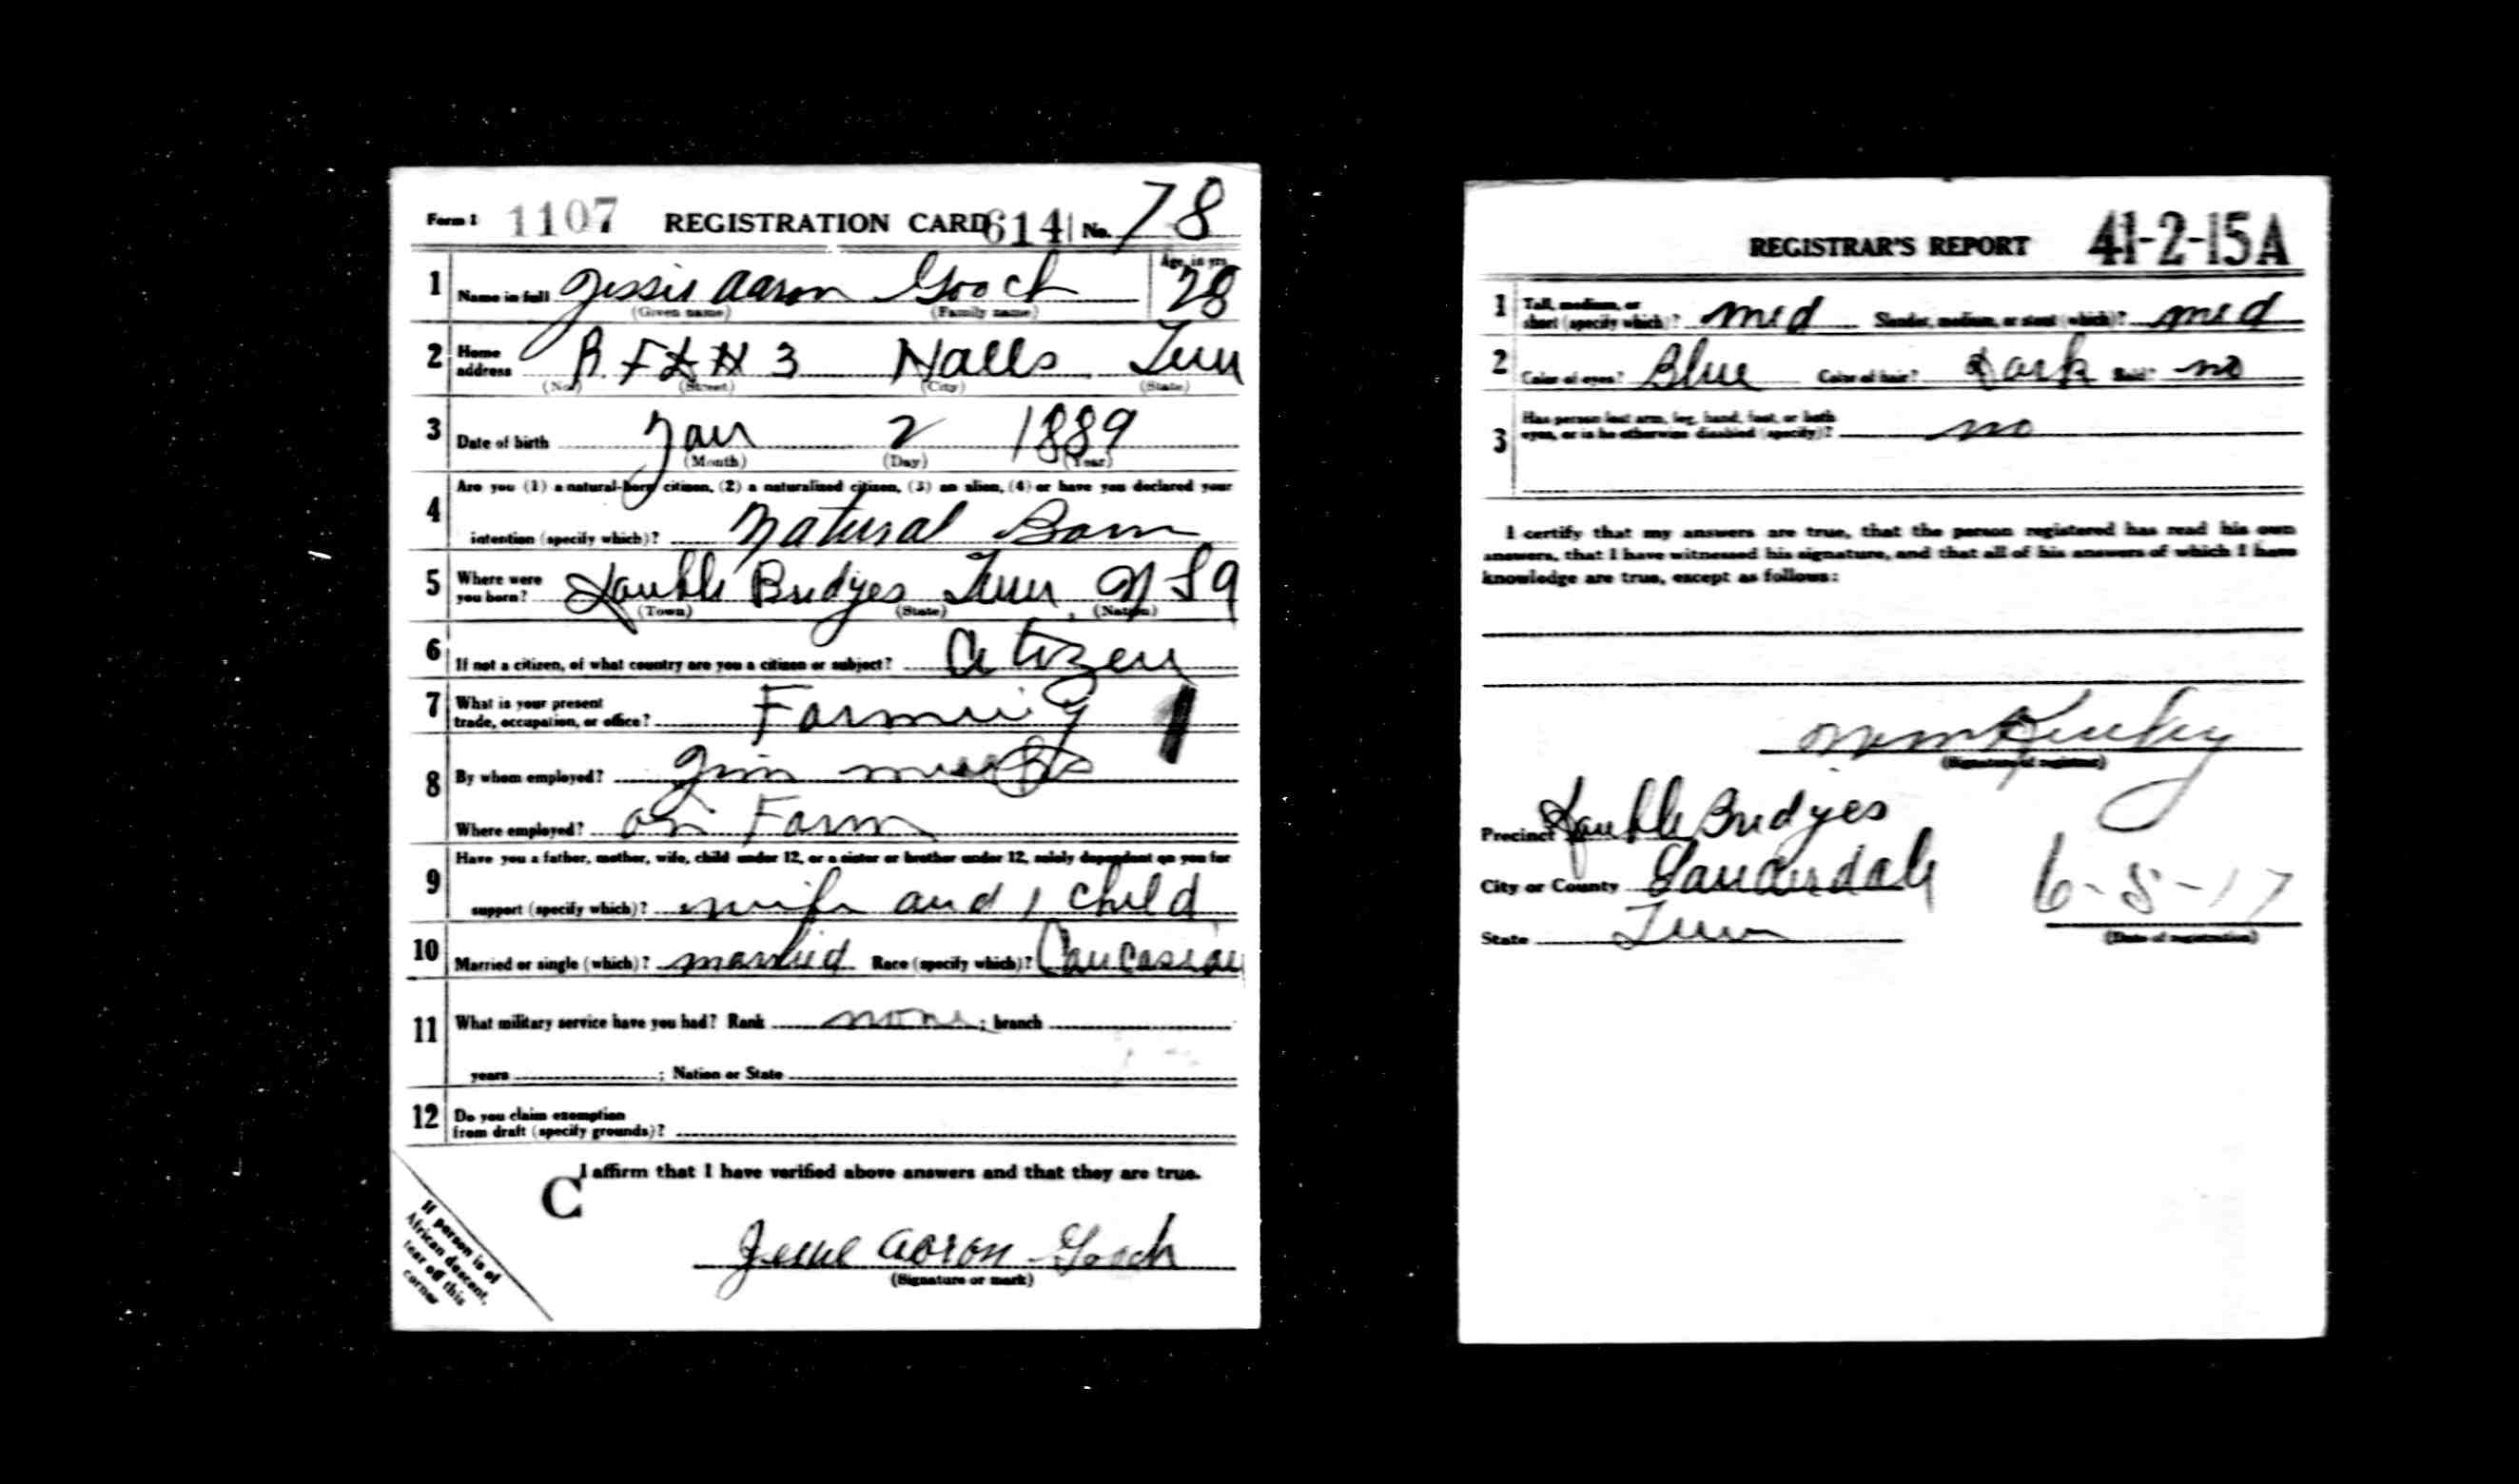 Form 1 1107 REGISTRATION CARD 614 No. 78
1 Name in full Jessie Aaron Gooch Age, in yrs. 28
(Given name) (Family name)
2 Home address R.F.D # 3 Halls Tenn
(No.) (Street) (City) (State)
3 Date of birth Jan 2 1889
(Month) (Day) (Year)
4 Are you (1) a natural-born citizen, (2) a naturalized citizen, (3) an alien, (4) or have you declared your
intention (specify which)? Natural Born
5 Where were you born? Double Bridges Tenn USA
(Town) (State) (Nation)
6 If not a citizen, of what country are you a citizen or subject? Citizen
7 What is your present
trade, occupation, or office? Farming 1
8 By whom employed? Jim
Where employed? on Farm
9 Have you a father, mother, wife, child under 12, or a sister or brother under 12, solely dependent on you for
support (specify which)? wife and 1 child
10 Married or single (which)? married Race (specify which)? Caucasian
11 What military service have you had? Rank none ; branch
years ; Nation or State
12 Do you claim exemption
from draft (specify grounds)?
I affirm that I have verified above answers and that they are true.
C
Jessie Aaron Gooch
(Signature or mark)
If person is of
African descent,
tear off this
corner
REGISTRAR'S REPORT 41-2-15A
1 Tall, medium, or
short (specify which)? med Slender, medium, or stout (which)? med
2 Color of eyes? Blue Color of hair? Dark Bald? no
3 Has person lost arm, leg, hand, foot, or both
eyes, or is he otherwise disabled (specify)? no
I certify that my answers are true, that the person registered has read his own
answers, that I have witnessed his signature, and that all of his answers of which I have
knowledge are true, except as follows:
(Signature of registrar)
Precinct Double Bridges
City or County Lauderdale 6-5-17
State Tenn (Date of registration)